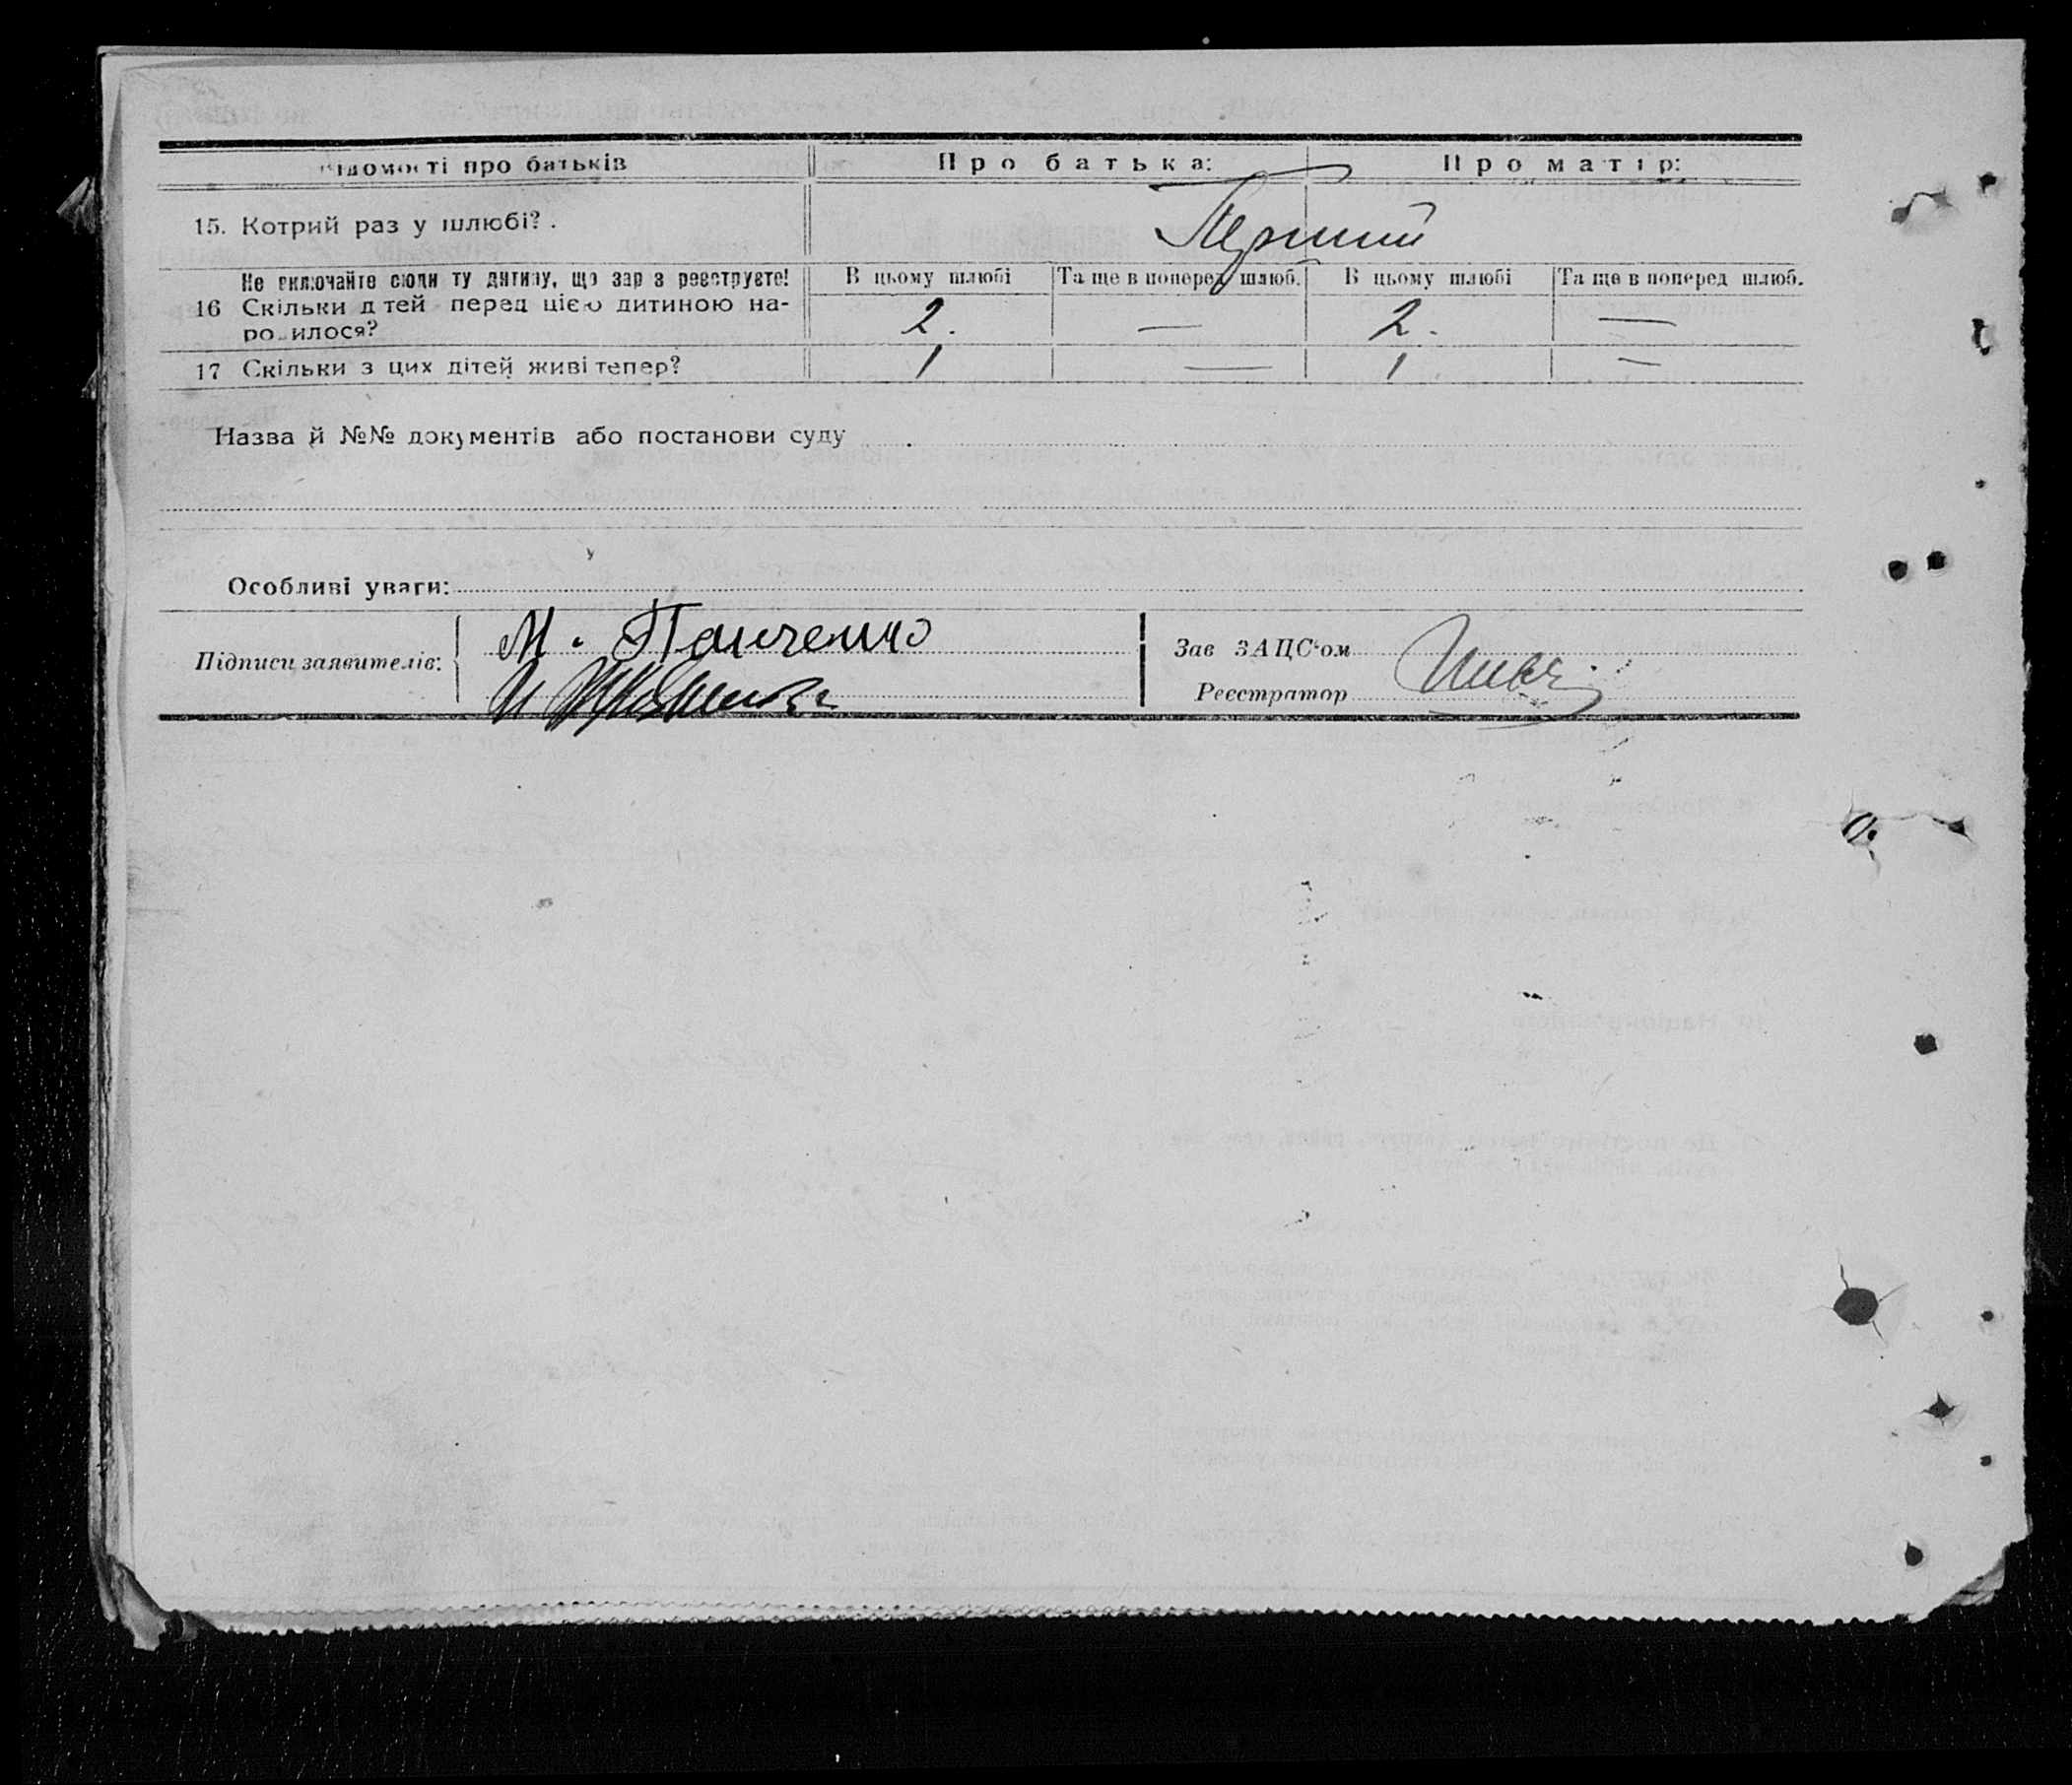 ідомості про батьків	Про батька:	Про матір:
15. Котрий раз у шлюбі? .	Перший
Не включайте сюди ту дитину, що зар з реєструєте!	В цьому шлюбі	Та ще в поперед шлюб.	В цьому шлюбі	Та ще в поперед шлюб.
16 Скільки д тей перед цією дитиною на-
ро илося?	2.	—	2.	—
17 Скільки з цих дітей живі тепер?	1	—	1	—
Назва й №№ документів або постанови суду
Особливі уваги:
Підписи заявителів:	М. Панченко	Зав ЗАЦС'ом
Реєстратор